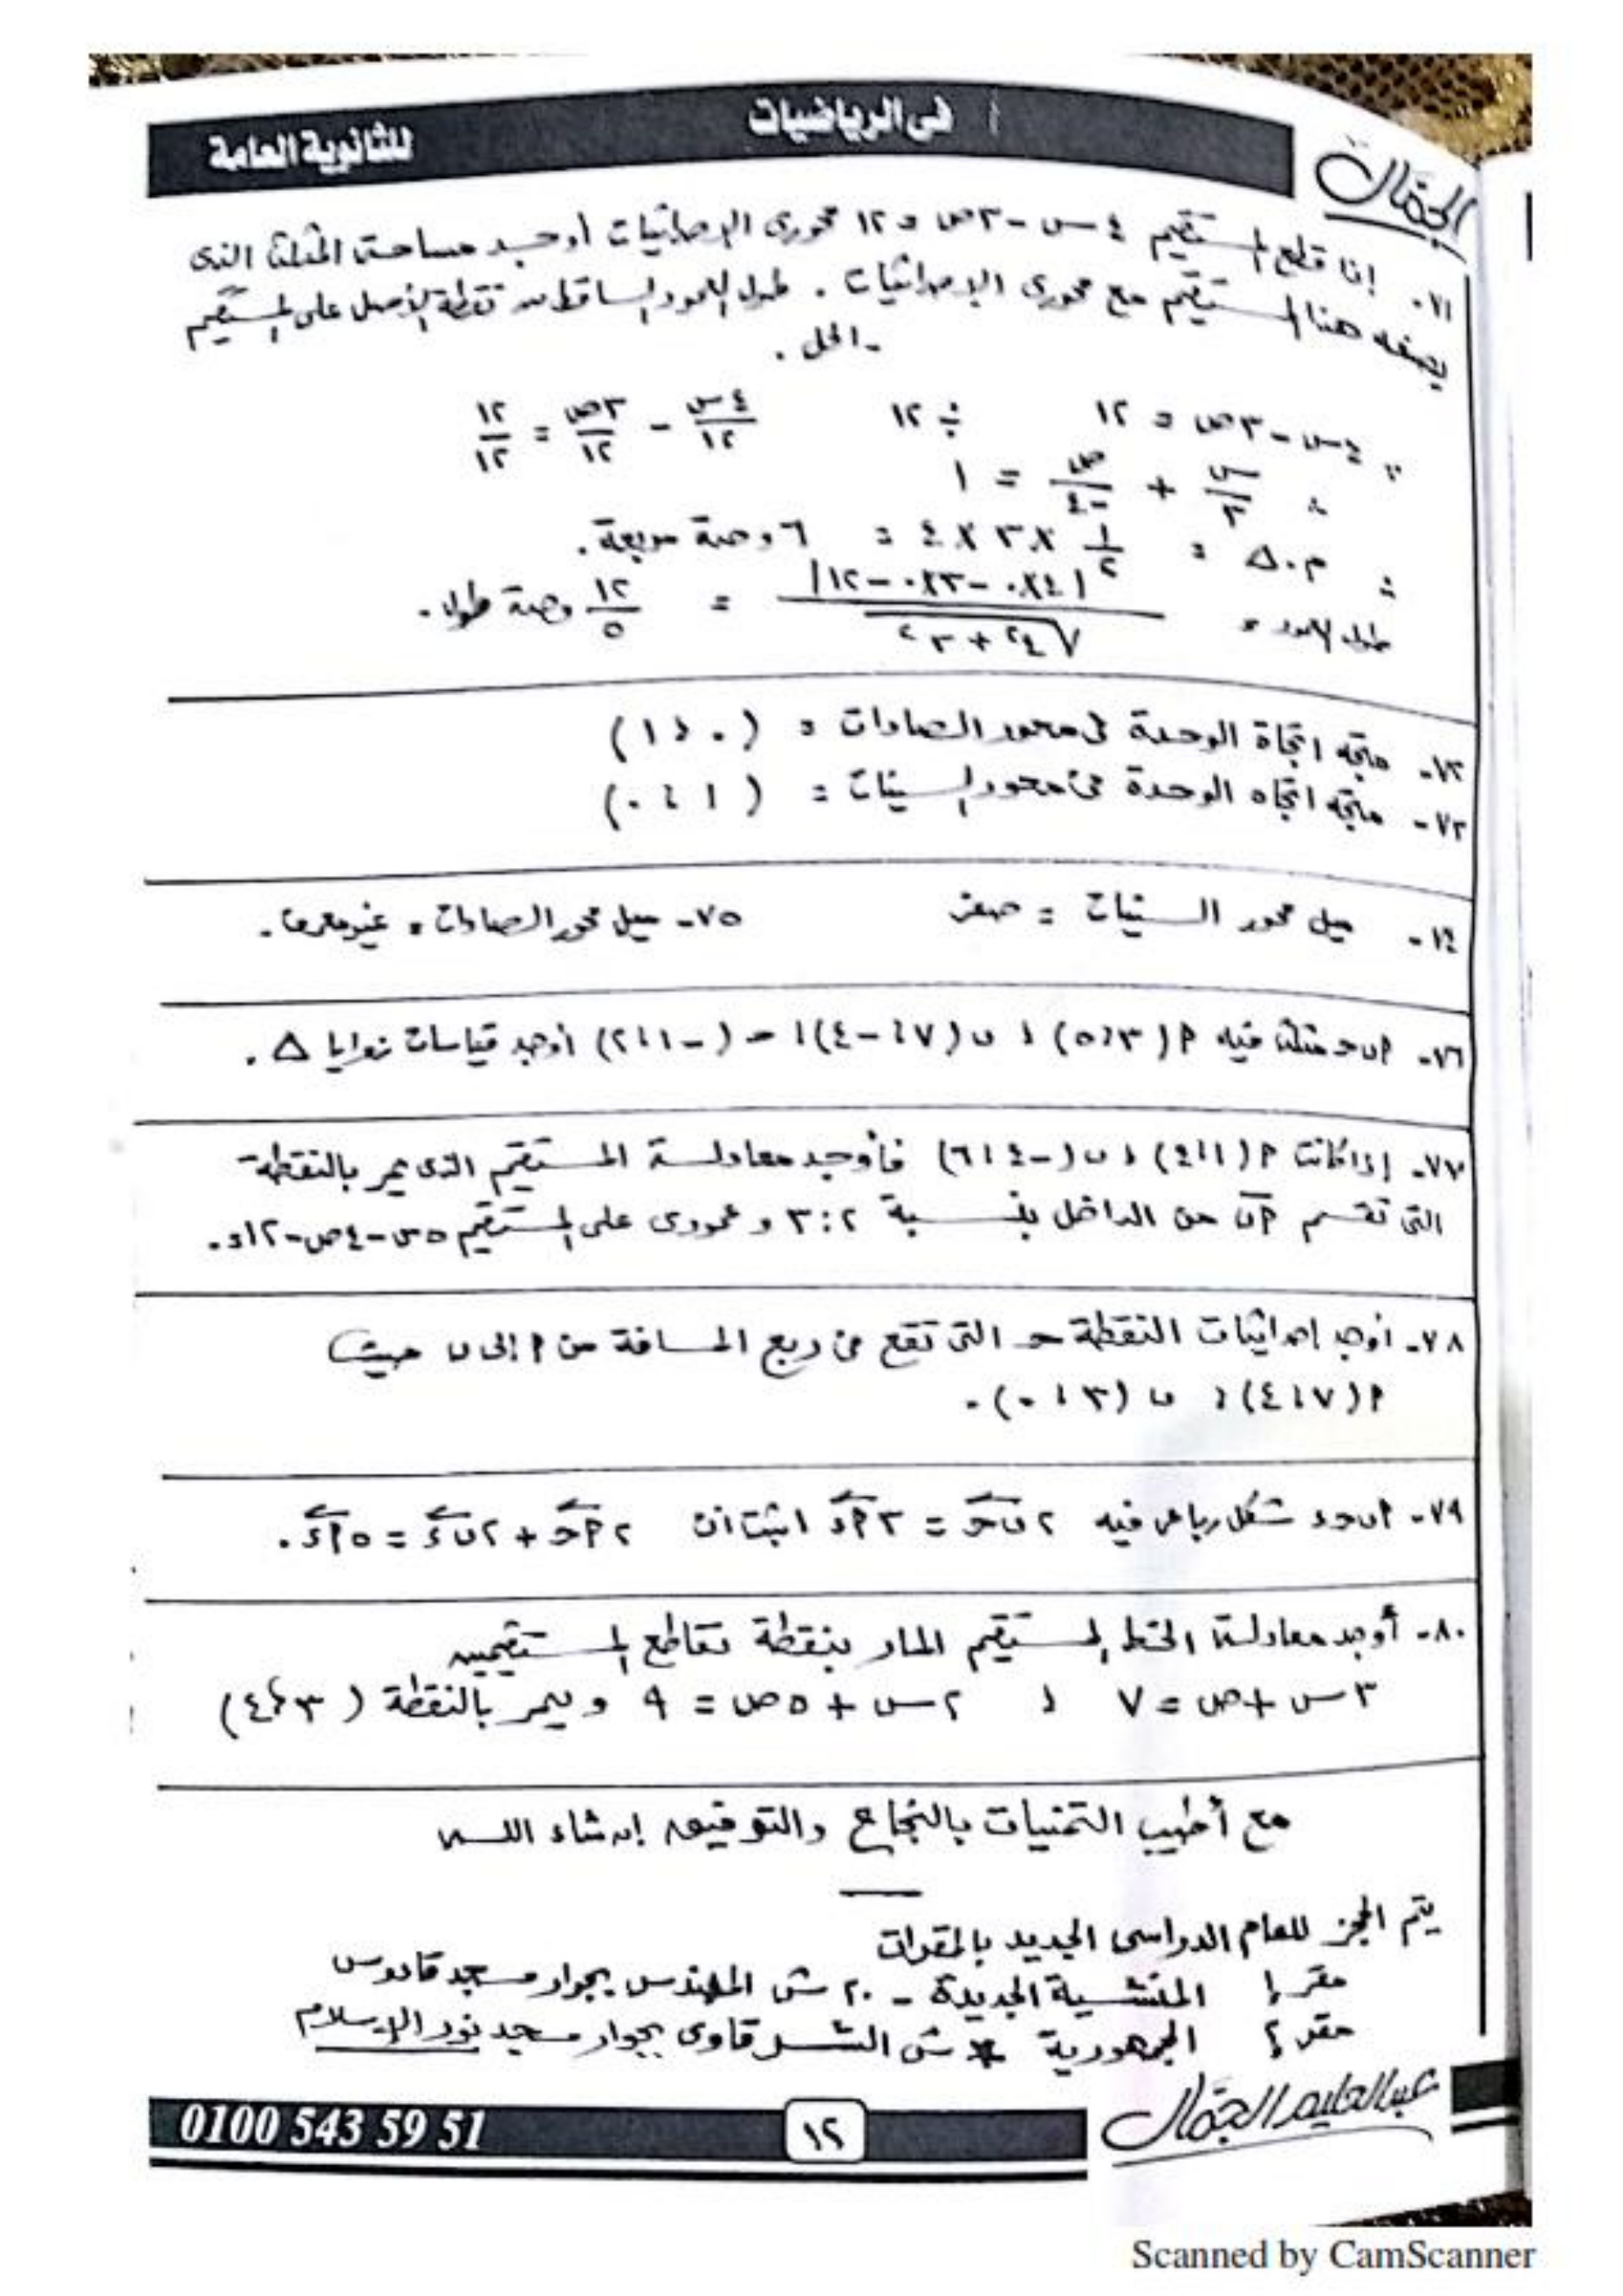 الجمال
فى الرياضيات
للثانوية العامة
٧١. إذا قطع المستقيم ٤س - ٣ص = ١٢ محورى الإحداثيات أوجد مساحة المثلث الذى
يصنعه هذا المستقيم مع محورى الإحداثيات . طول العمود الساقط من نقطة الأصل على المستقيم
الحل .
∵ ٤س - ٣ص = ١٢ ÷ ١٢ ٤س/١٢ - ٣ص/١٢ = ١٢/١٢
∴ س/٣ + ص/-٤ = ١
∴ م . ∆ = ١/٢ × ٣ × ٤ = ٦ وحدة مربعة .
طول العمود = |٤×٠ - ٣×٠ - ١٢| / √(٤² + ٣²) = ١٢/٥ وحدة طول .
٧٢- متجه اتجاة الوحدة فى محور الصادات = (٠ ، ١)
٧٣- متجه اتجاه الوحدة فى محور السينات = (١ ، ٠)
٧٤- ميل محور السينات = صفر ٧٥- ميل محور الصادات = غير معرف .
٧٦- ا ب ح مثلث فيه ا (٣ ، ٥) ، ب (٧ ، -٤) ، ح (-١ ، ٢) أوجد قياسات زوايا ∆ .
٧٧- إذا كانت ا (١ ، ٤) ، ب (-٤ ، ٦) فأوجد معادلة المستقيم الذى يمر بالنقطة
التى تقسم اب من الداخل بنسبة ٢ : ٣ و عمودى على المستقيم ٥س - ٤ص - ١٢ = ٠ .
٧٨- أوجد إحداثيات النقطة ح التى تقع فى ربع المسافة من ا إلى ب حيث
ا (٧ ، ٤) ، ب (٣ ، ٠) .
٧٩- ا ب ح ء شكل رباعى فيه ٢ ب ح = ٣ ا ء اثبت أن ٢ ا ح + ٢ ب ء = ٥ ا ء .
٨٠- أوجد معادلة الخط المستقيم المار بنقطة تقاطع المستقيمين
٣س + ص = ٧ ، ٢س + ٥ص = ٩ ويمر بالنقطة (٣ ، ٤)
مع أطيب التمنيات بالنجاح والتوفيق إن شاء الله
يتم الحجز للعام الدراسى الجديد بالمقرات
مقر ١ المنشية الجديدة - ٢٠ ش المهندس بجوار مسجد قادوس
مقر ٢ الجمهورية * ش الشرقاوى بجوار مسجد نور الإسلام
عبدالحليم الجمال
١٢
0100 543 59 51
Scanned by CamScanner